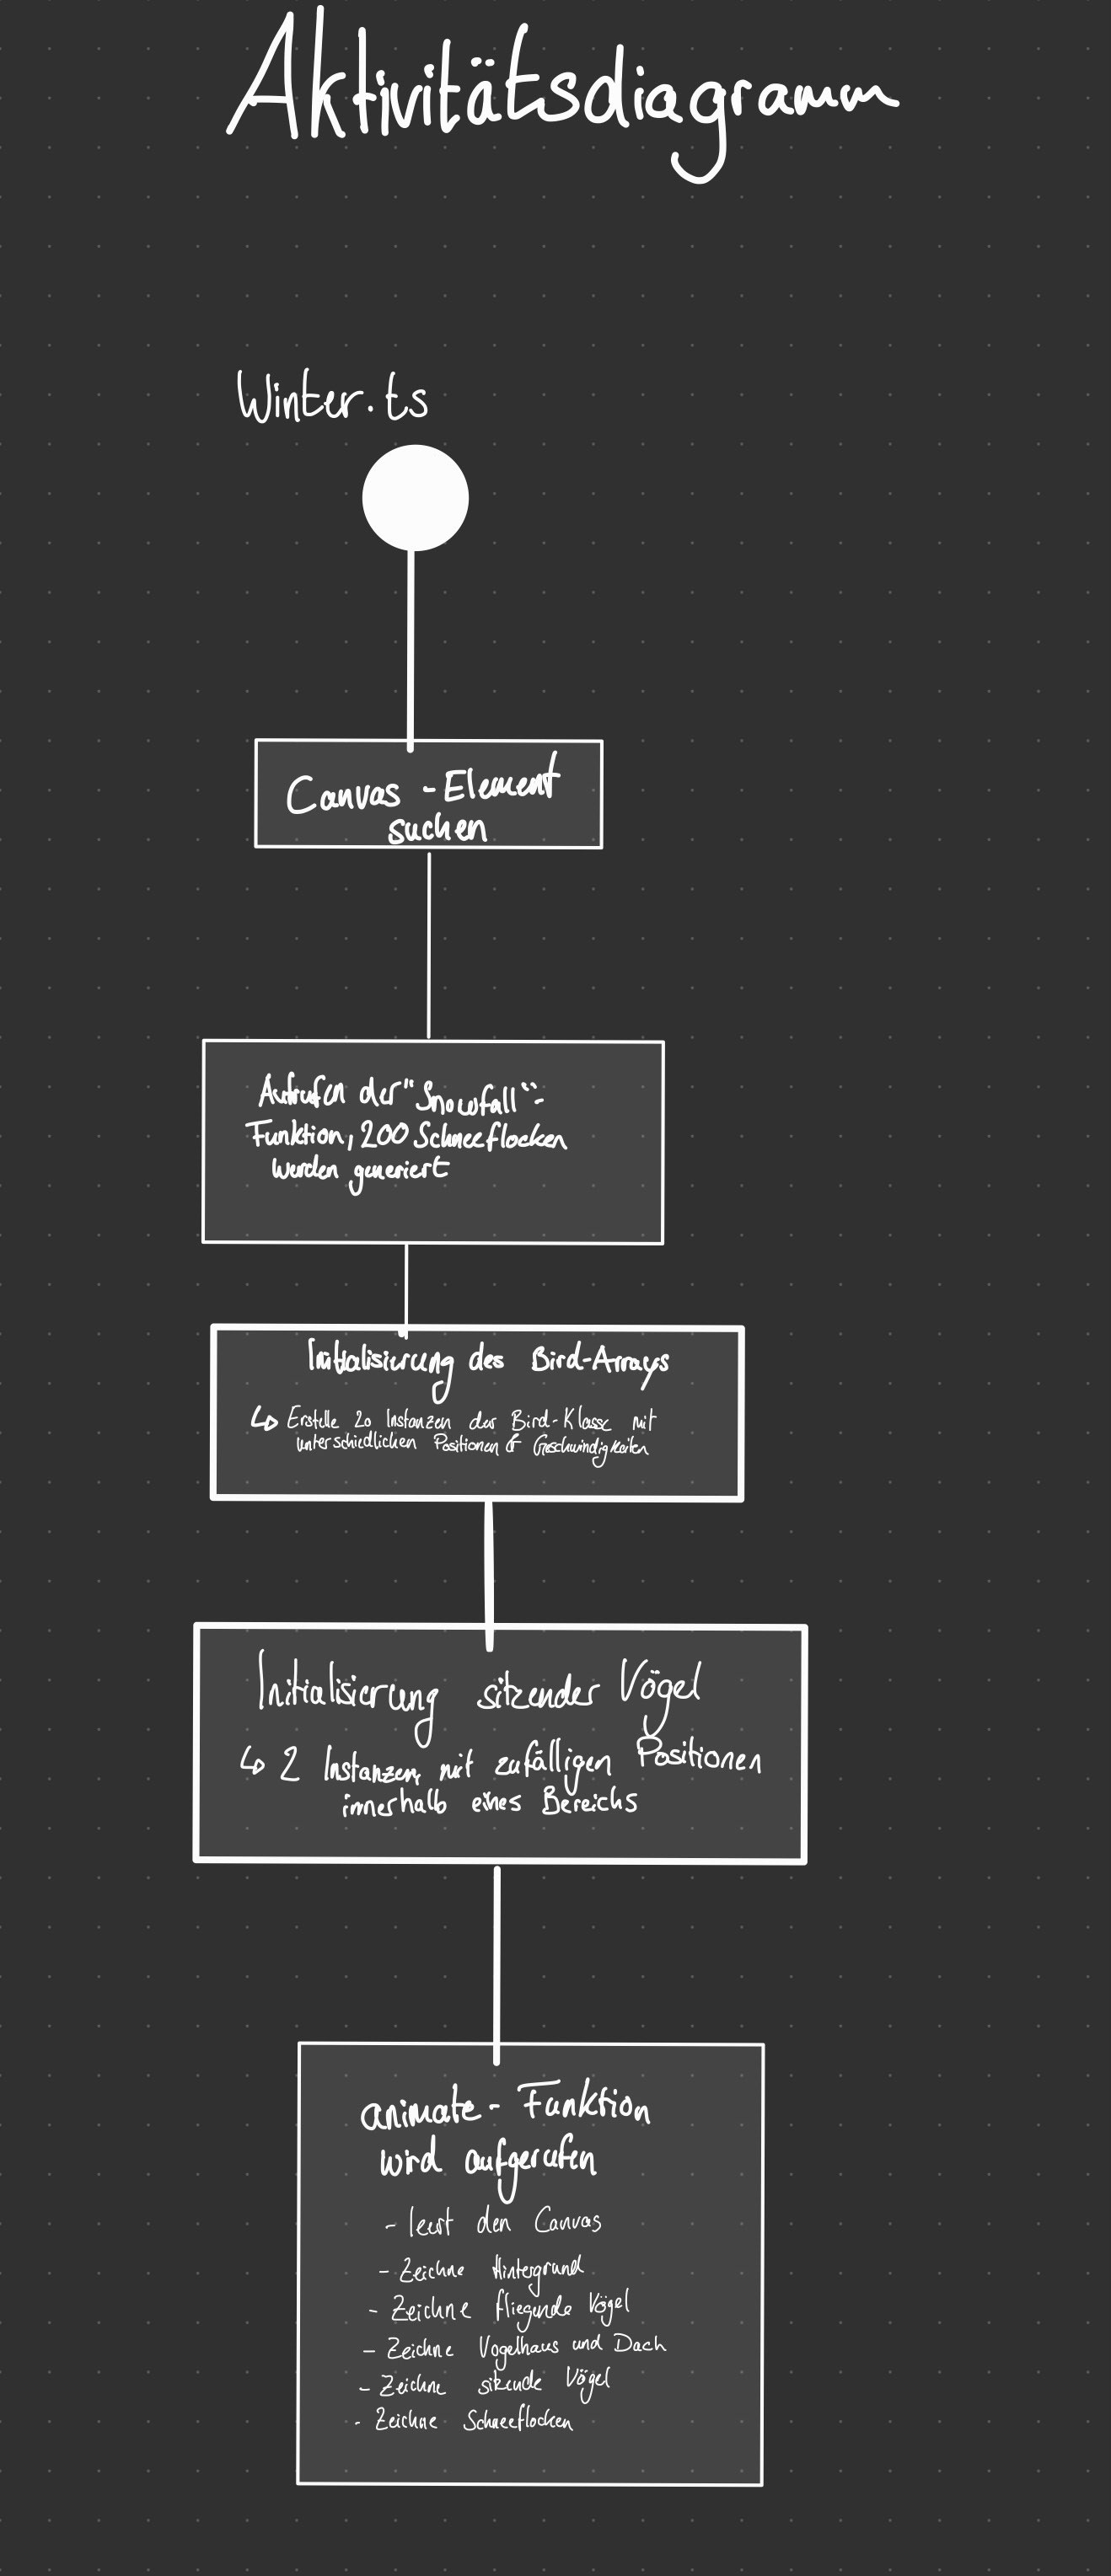 Aktivitätsdiagramm
Winter.ts
Canvas - Element
suchen
Aufrufen der "Snowfall"-
Funktion, 200 Schneeflocken
werden generiert
Initialisierung des Bird-Arrays
↳ Erstelle 20 Instanzen der Bird-Klasse mit
unterschiedlichen Positionen & Geschwindigkeiten
Initialisierung sitzender Vögel
↳ 2 Instanzen, mit zufälligen Positionen
innerhalb eines Bereichs
animate - Funktion
wird aufgerufen
- leert den Canvas
- Zeichne Hintergrund
- Zeichne fliegende Vögel
- Zeichne Vogelhaus und Dach
- Zeichne sitzende Vögel
- Zeichne Schneeflocken